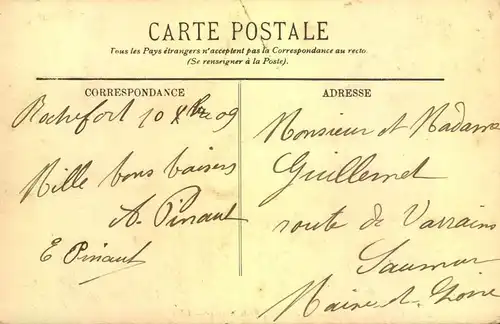 CARTE POSTALE
Tous les Pays étrangers n'acceptent pas la Correspondance au recto.
(Se renseigner à la Poste).
CORRESPONDANCE
Rochefort 10 Xbre 09
Mille bons baisers
A. Pinaut
E Pinaut
ADRESSE
Monsieur et Madame
Guillemet
route de Varrains
Saumur
Maine-et-Loire